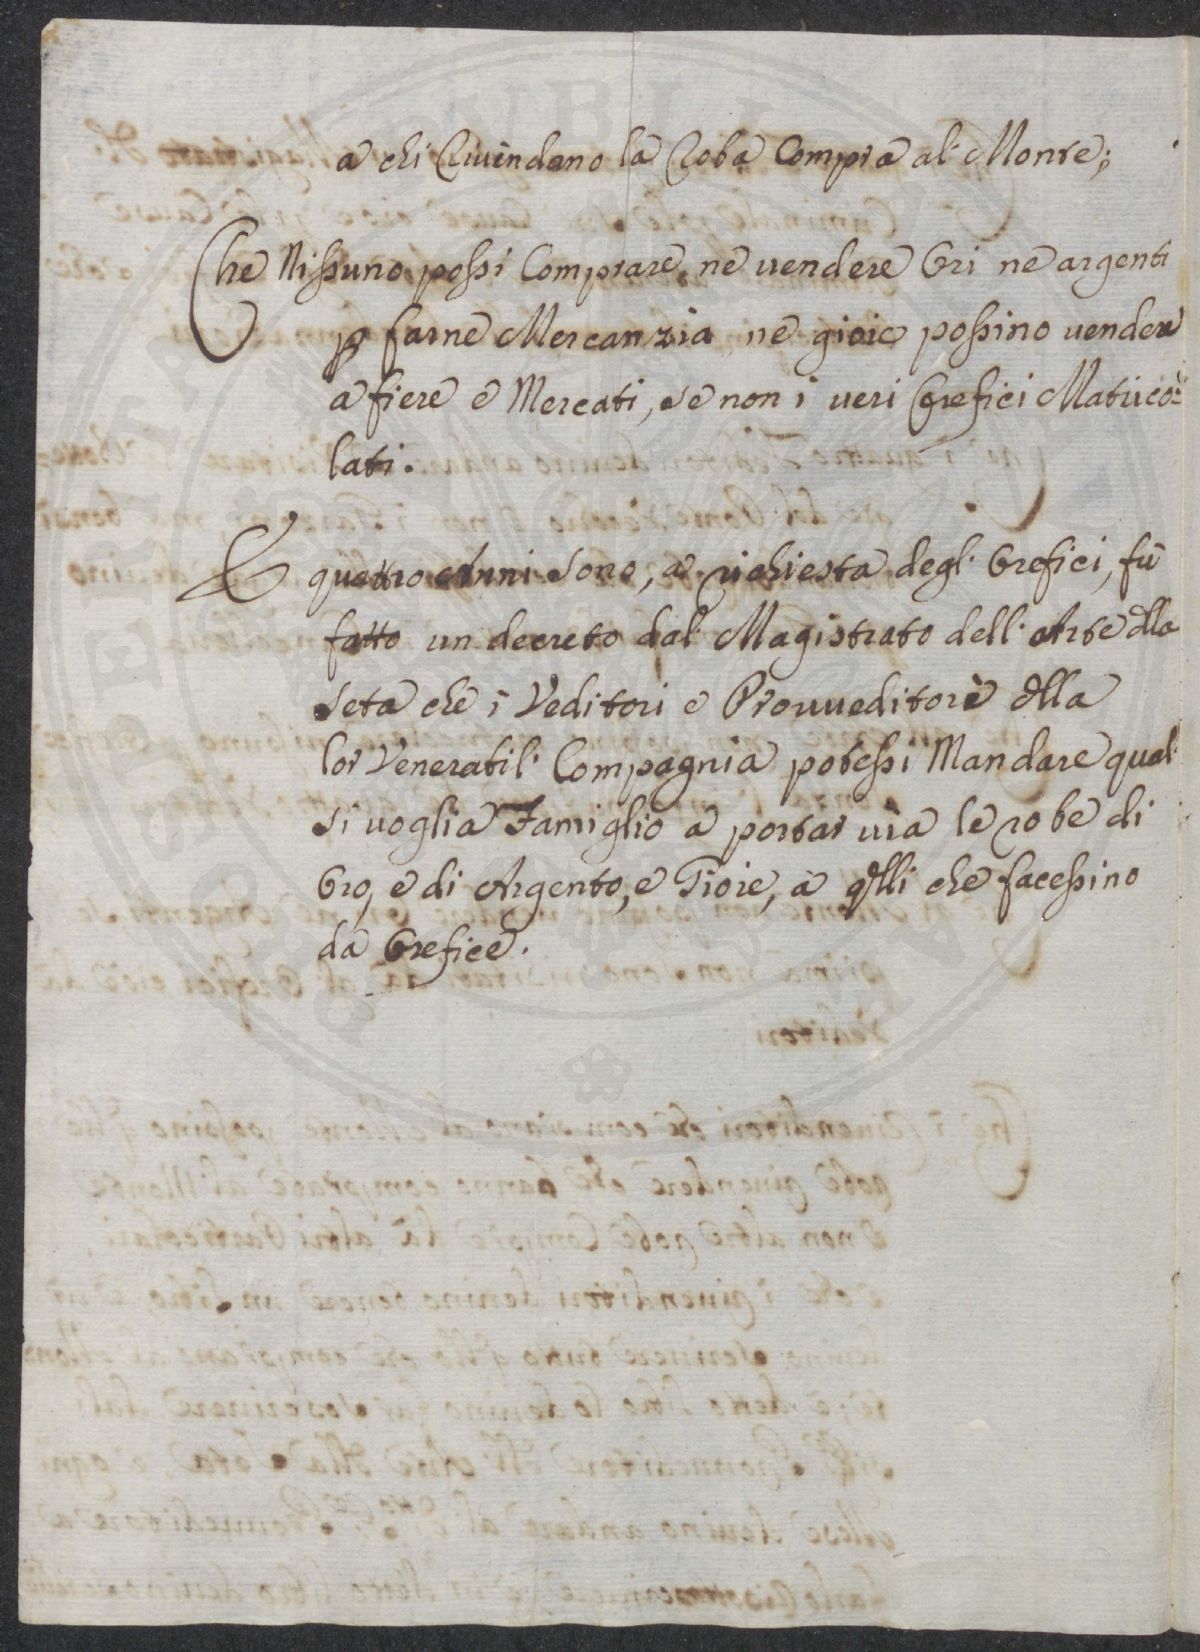 a chi Rivendano la Roba Compra al Monte;
Che Nissuno possi Comprare, ne vendere Ori ne argenti
p farne Mercanzia, ne gioie possino vendere
a fiere e Mercati, se non i veri Orefici Matrico:
lati.
E quattro Anni sono, a richiesta degl' Orefici, fù
fatto un decreto dal Magistrato dell' Arte dlla
Seta che i Veditori e Provveditore dlla
lor Venerabil' Compagnia potessi Mandare qual
si voglia Famiglio a portar via le robe di
Oro, e di Argento, e Gioie, a qlli che facessino
da Orefice.